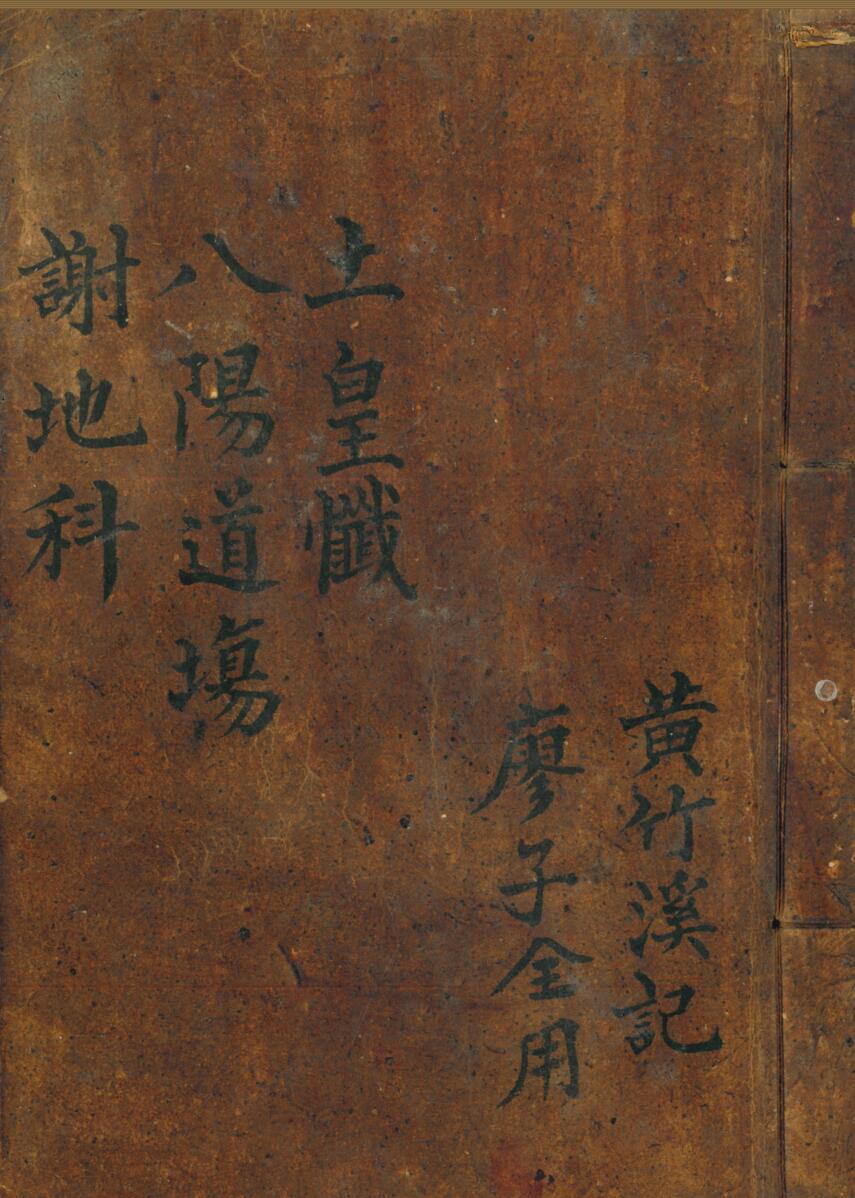 黄竹溪記
廖子全用
土皇懺
八陽道塲
謝地科